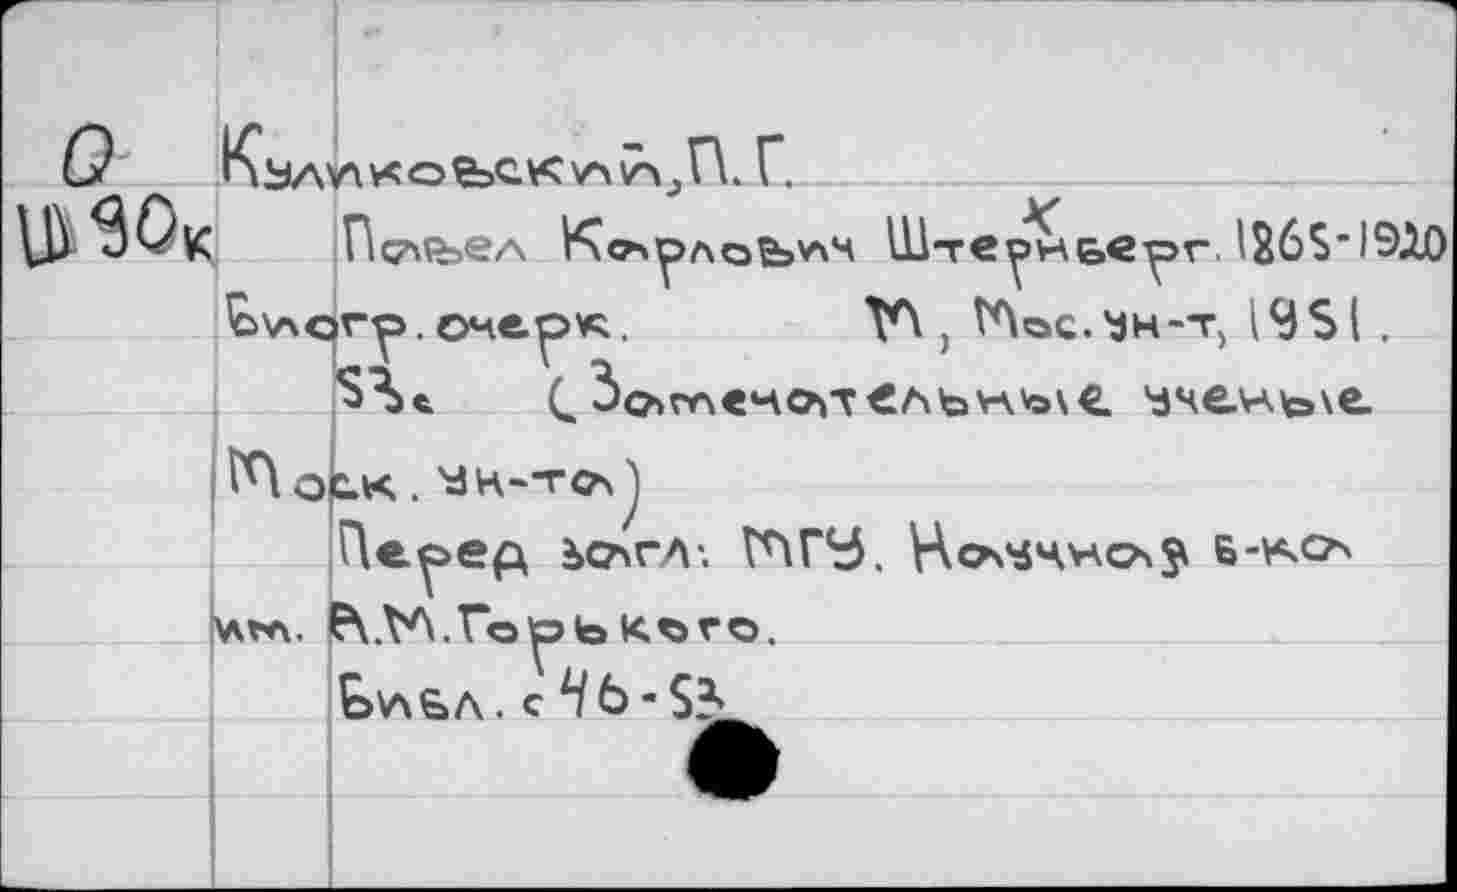 О Куликовский, П.Г.
Ш90к Павел Карлович Штернберг. 1865-1920
Биогр. очерк. М, Мос. ун-т, 1951.
53с (Замечательные ученые
Моск. ун-та)
Перед загл: МГУ. Научная б-ка
им. А.М. Горького.
Библ. с 46-52